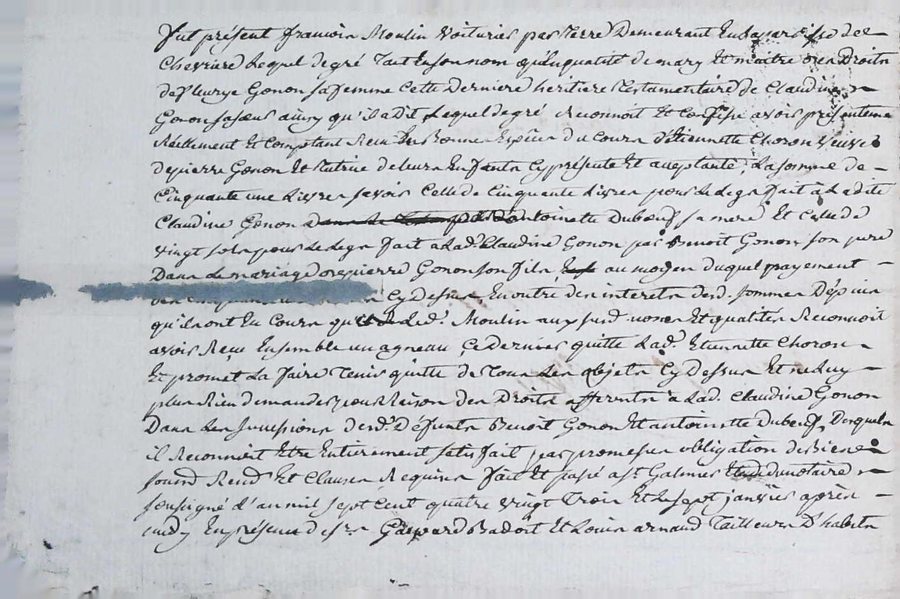 fut présent francois Moulin voiturier par terre Demeurant En la parroisse de
Chevriere Lequel de gré tant En son nom qu'En qualité de mary Et maitre des Droits
de fleurye Gonon sa femme cette derniere héritiere testamentaire de Claudine
Gonon sa sœur ainsy qu'il a dit Lequel de gré Reconnoit Et confesse avoir présentement
Réellement Et comptant Reçu En Bonnes Espèces du cours d'Etiennette Choron veuve
de pierre Gonon Et tutrice de leurs Enfants cy présente Et acceptante, La somme de
Cinquante une Livres savoir Celle de Cinquante Livres pour le legs fait à Ladite
Claudine Gonon par antoinette Dubœuf sa mere Et celle de
vingt sols pour le legs fait a Lad. Claudine Gonon par Benoit Gonon, son pere
Dans le mariage de pierre Gonon son fils au moyen duquel payement
des cinquante une cy Dessus En outre des interets desd. sommes Depuis
qu'ils ont Eu Cours que Led. Moulin auxsusd. noms Et qualités Reconnoit
avoir Reçu Ensemble un agneau, Ce Dernier quitte Lad. Etiennette Choron
Et promet La faire tenir quitte de tous Les objets Cy Dessus Et ne luy
plus Rien demander pour Raison des Droits afferents a Lad. Claudine Gonon
Dans Les successions desd. Défunts Benoit Gonon Et antoinette Dubœuf, Desquels
il Reconnoit Etre Entierement satisfait, par promesses obligation de Biens
soumd. Rend. Et Clauses Requises fait Et passé a St. Galmier Etude du notaire
soussigné L'an mil sept cent quatre vingt trois Et Le sept janvier après
midy En présence de srs. Gaspard Badoit Et Louis arnaud tailleurs D'habits